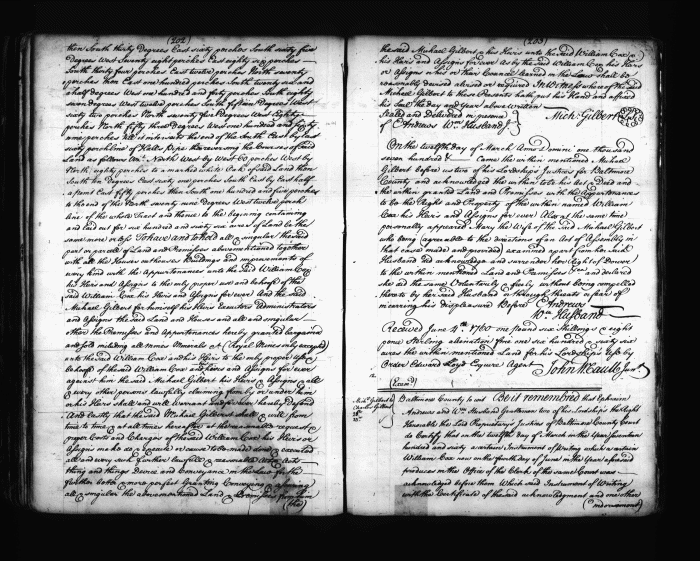 (202)
then South thirty Degrees East sixty perches South sixty five
Degrees West Seventy eight perches East eighty six perches
South thirty four perches East twelve perches North seventy
perches then East one hundred perches South twenty six and
a half degrees West one hundred and forty perches South eighty
seven degrees West twelve perches South fifteen Degrees West
sixty two perches North seventy five Degrees West Eighty
perches North fifty three Degrees West one hundred and forty
one perches till it intersects the end of the South East by
sixty perch line of Halls Hope then reversing the Courses of said
Land as follows North West by West 60 perches West by
North eighty perches to a marked white Oak of said Land then
South ten Degrees East sixty one perches South East by East half
a point East fifty perches then South one hundred and five perches
to the end of the North seventy nine Degrees West twelve perch
line of the whole Tract and thence to the beginning containing
and laid out for one hundred and sixty six acres of Land be the
same more or less To have and to hold all & singular the said
part or parcell of Land and Premisses abovementioned together
with all the Houses outhouses Buildings and improvements of
every kind with the Appurtenances unto the said William Cox
his Heirs and Assigns to the only proper use and behoof of the
said William Cox his Heirs and Assigns for ever And the said
Michael Gilbert for himself his Heirs Executors Administrators
and Assigns the said Land and Houses and all and singular
other the Premisses and Appurtenances hereby granted bargained
and sold including all mines Minerals &c (Royal Mines only accepted)
unto the said William Cox and his Heirs to the only proper use &
behoof of the said William Cox and his Heirs and Assigns for ever
against him the said Michael Gilbert his Heirs & Assigns & all
& every other persons lawfully claiming from by or under him
or his Heirs shall and will Warrant and for ever hereby Defend
And Lastly that the said Michael Gilbert shall & will from
time to time & at all times hereafter at the reasonable request &
proper Costs and Charges of the said William Cox his Heirs or
Assigns make do & execute or cause to be made done & executed
all and every such further lawfull & reasonable Act Acts
thing and things Device and Conveyance in the Law for the
further better & more perfect Granting Conveying & assuring
all & singular the abovementioned Land & Premisses from him
(the)
(203)
the said Michael Gilbert & his Heirs unto the said William Cox &
his Heirs and Assigns for ever As by the said William Cox his Heirs
or Assigns or his or their Councel learned in the Law shall be
reasonably devised advised or required In Witness whereof the said
Michael Gilbert to these Presents hath put his Hand and affixed
his Seal the day and Year above Written
Sealed and Delivered in presence
of Andrews Wm Husband
Mich: Gilbert
On the twelfth day of March Anno Domini one thousand
seven hundred & Came the within mentioned Michael
Gilbert before us two of his Lordships Justices for Baltimore
County and acknowledged the within to be his Act & Deed and
the within granted Land and Premisses with the Appurtenances
to be the Right and Property of the within named William
Cox his Heirs and Assigns for ever Also at the same time
personally appeared Mary the Wife of the said Michael Gilbert
who being (agreeable to the directions of an Act of Assembly in
that case made and provided) examined apart from her such
Husband did acknowledge and surrender her Right of Dower
to the within mentioned Land and Premisses and declared
she did the same Voluntarily & freely without being compelled
thereto by her said Husband or through threats or fear of
incurring his displeasure Before Andrews
Wm Husband
Received June 4th 1760 one pound six Shillings & eight
pence Sterling alienation fine one hundred & sixty six
acres the within mentioned Land for his Lordships Use by
Order Edward Loyd Esquire Agent John Meaule Junr
(Examd)
Mich: Gilbert &
Charles Gilbert
Baltimore County to wit Be it remembred that Ephraim
Andrews and Wm Husband Gentlemen two of his Lordships the Right
Honorable the Lord Proprietary's Justices of Baltimore County Court
do Certify that on the twelfth day of March in the Year seventeen
hundred and sixty a certain Instrument of Writing which a certain
William Cox now on the fourth day of June in the Year aforesaid
produces in the Office of the Clerk of the same Court was
acknowledged before them Which said Instrument of Writing
with the Certificate of the said acknowledgment and one other
(indorsement)